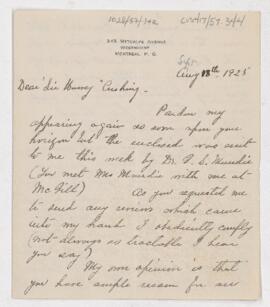 WESTMOUNT
MONTREAL P. Q.
Sept.
Aug 18th 1925
Dear "Sir Harvey" Cushing -
Pardon my
appearing again so soon upon your
horizon but the enclosed was sent
to me this week by Dr.
(You met Mrs with me at
McGill) As you requested me
to send any reviews which came
into my hand I obediently comply
(not always so tractable I hear
you say?)
My own opinion is that
you have ample reason for